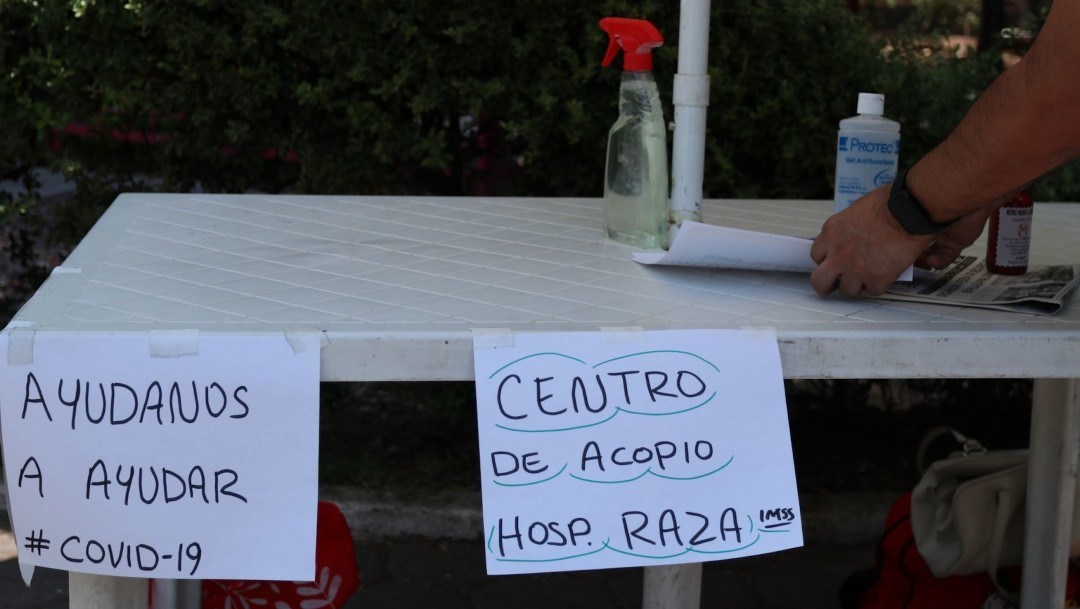 AYUDANOS
A AYUDAR
#COVID-19
CENTRO
DE ACOPIO
HOSP. RAZA IMSS
PROTEC
Gel Antibacterial